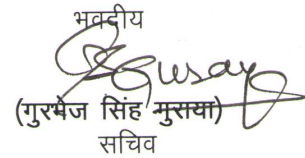 भवदीय
(गुरभेज सिंह गुराया)
सचिव